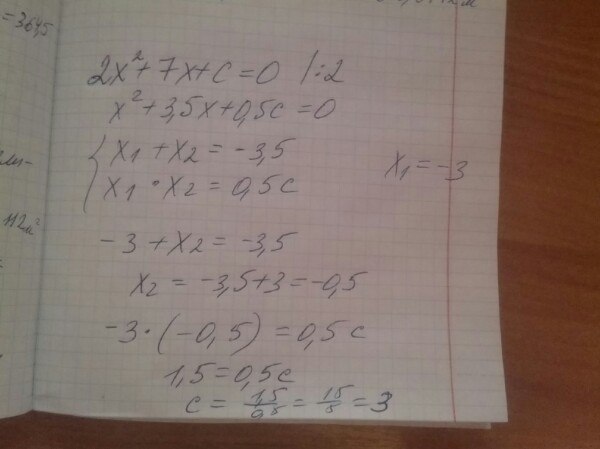 = 364,5
2x² + 7x + c = 0 | : 2
x² + 3,5x + 0,5c = 0
{ x₁ + x₂ = -3,5
x₁ · x₂ = 0,5c
x₁ = -3
112м²
-3 + x₂ = -3,5
x₂ = -3,5 + 3 = -0,5
-3 · (-0,5) = 0,5c
1,5 = 0,5c
c = 1,5/0,5 = 15/5 = 3